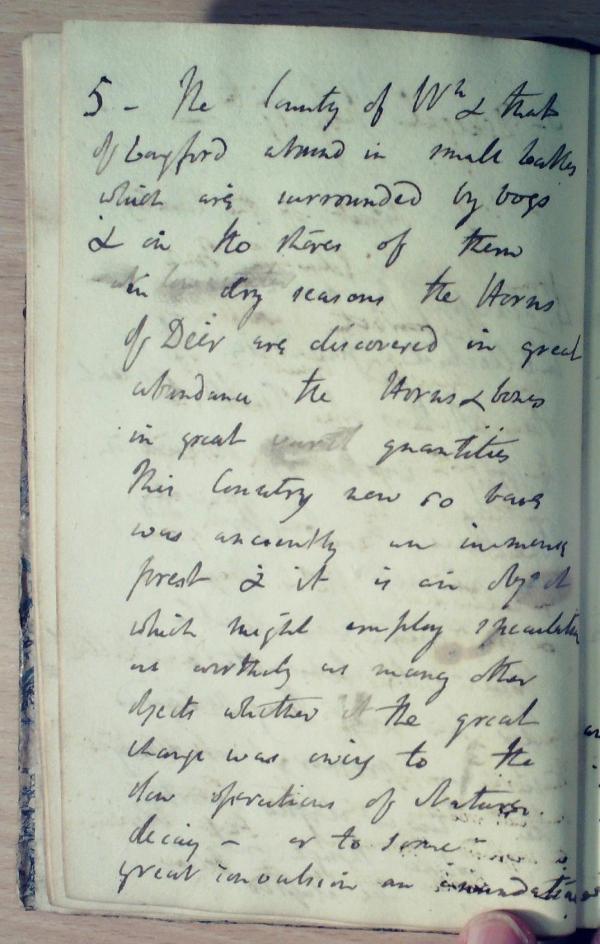 5 - The County of Wh & that
of Longford abound in small Lakes
which are surrounded by bogs
& in the shores of them
in dry seasons the Horns
of Deer are discovered in great
abundance the Horns & bones
in great quantities
This Country now so bare
was anciently an immense
forest & it is an object
which might employ speculation
as worthily as many other
objects whether the great
change was owing to the
slow operations of Nature
decay - or to some
great convulsion an inundation